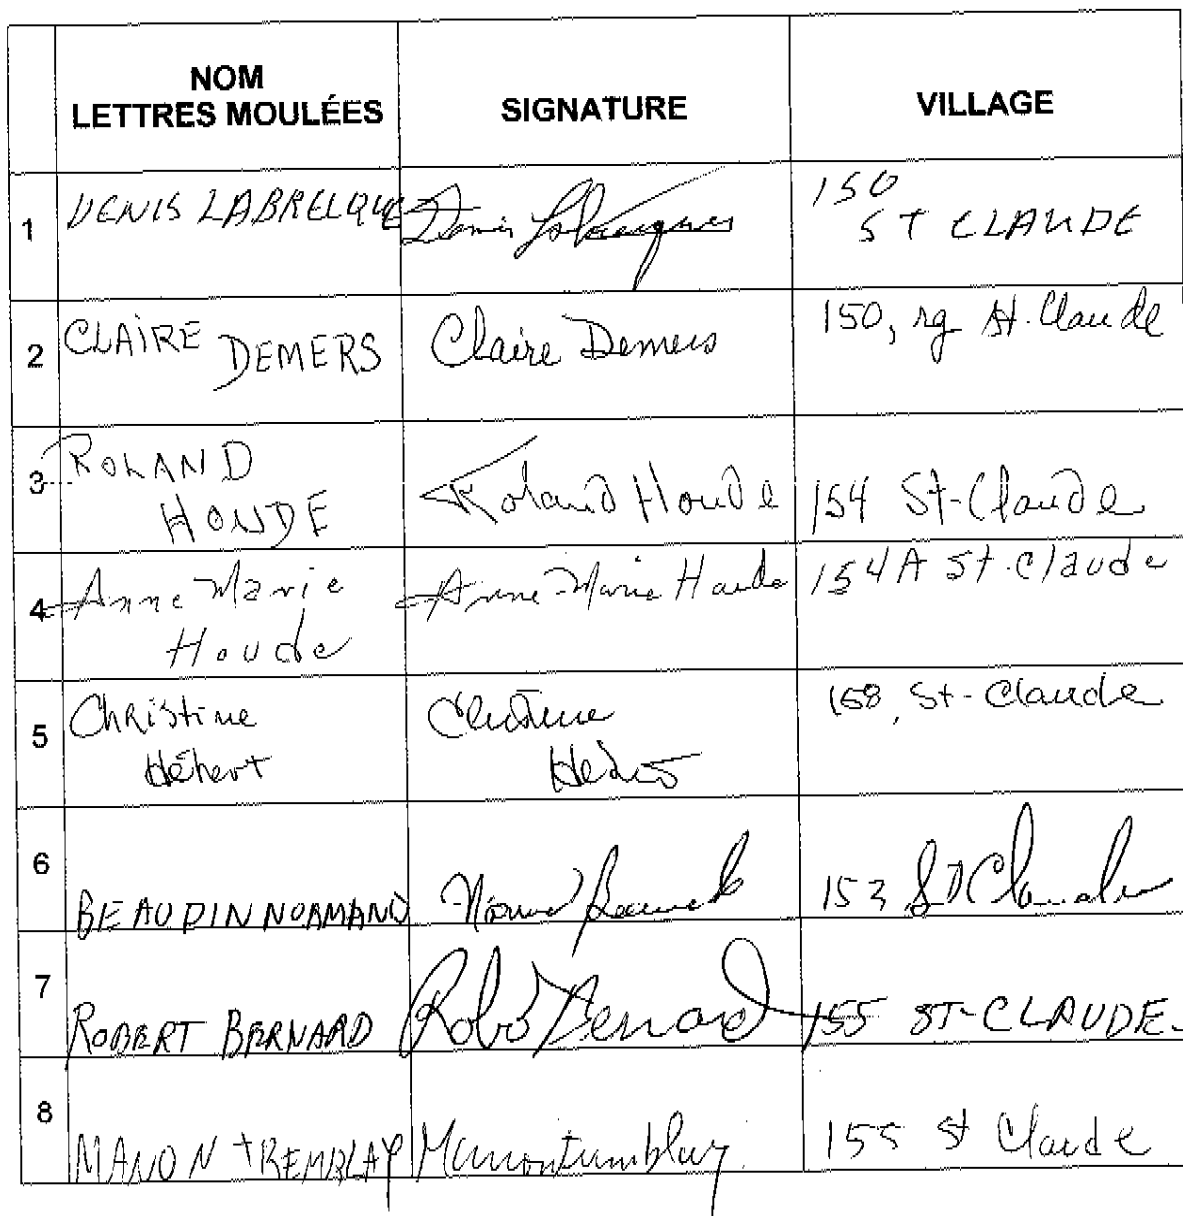 NOM
LETTRES MOULÉES SIGNATURE VILLAGE
1 DENIS LABRECQUE Denis Labrecque 150
ST CLAUDE
2 CLAIRE DEMERS Claire Demers 150, rg St. Claude
3 ROLAND
HOUDE Roland Houde 154 St-Claude
4 Anne Marie
Houde Anne-Marie Houde 154A St-Claude
5 Christine
Hébert Christine
Hébert 158, St-Claude
6 BEAUDIN NORMAND 153 St Claude
7 ROBERT BERNARD Robert Bernard 155 ST-CLAUDE
8 MANON TREMBLAY Manon Tremblay 155 St Claude